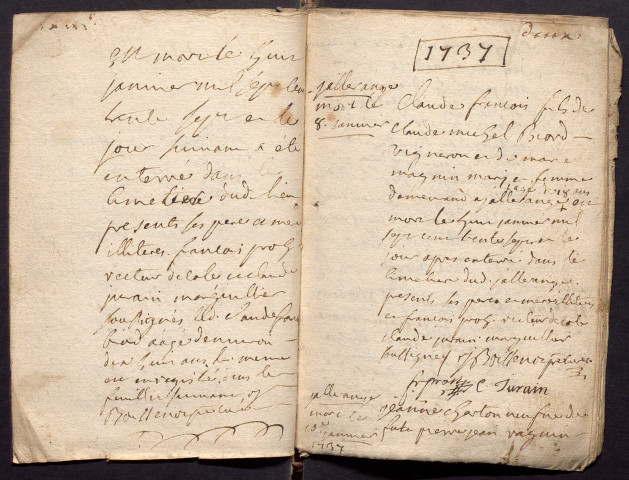 est mort le huit
janvier mil sept cen
trente sept et le
jour suivant a été
enterré dans
cimetiere dud. lieu
presents ses pere et mere
illiteres. francois prost
recteur decole et claude
jurain marguillier
soussignés led. claude fran
biord aagé denviron
dix huit ans, le meme
enregistré sur le
feuillet suivant
deux
1737
jallerange
mort le
8. janvier
Claude francois fils de
claude michel Biord
vigneron et de marie
magnin mariés en femme
agé de 18 ans
demeurand a jallerange est
mort le huit janvier mil
sept cent trente sept et le
jour apres enterré dans le
cimetiere dud. jallerange.
presents ses pere et mere illiteres
et francois prost recteur decole
claude jurain marguillier
soussignes
fr prost C Jurain
jallerange
mort le
janvier
1737
jeanne charton veufve de
fut pierre jean vagnin